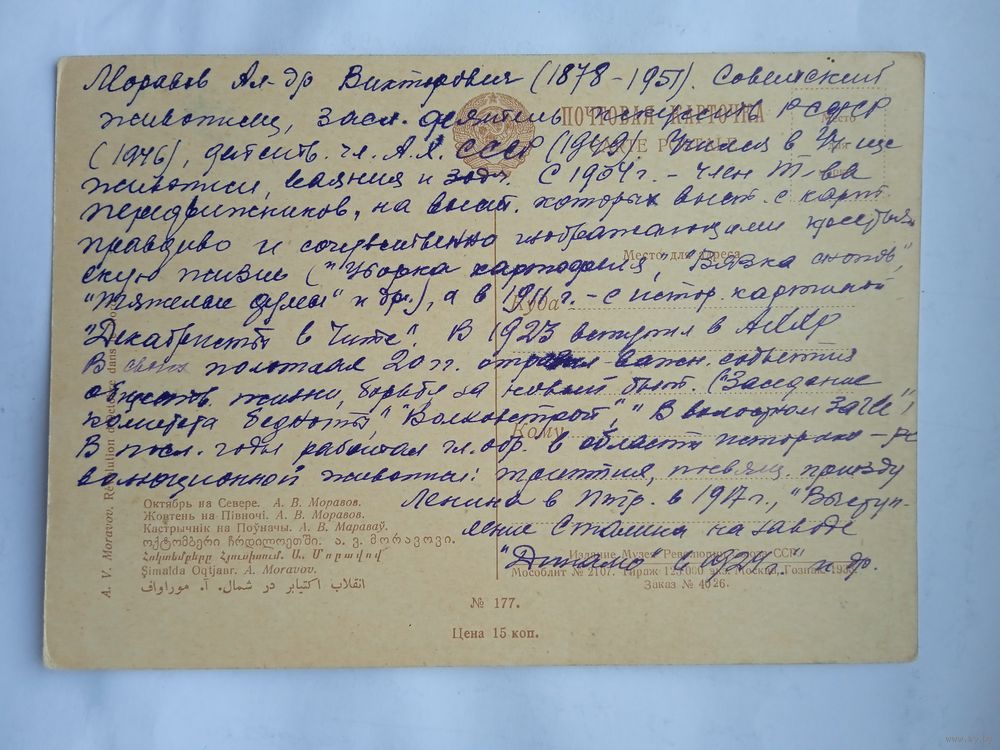 Моравов Ал-др Викторович (1878–1951). Советский
живописец, засл. деятель искусств РСФСР
(1946), действ. чл. А.Х. СССР (1949). Учился в Уч-ще
живописи, ваяния и зодч. С 1904 г. – член Т-ва
передвижников, на выст. которых выст. с карт.
правдиво и сочувственно изображающими крестьян
скую жизнь ("Уборка картофеля", "Вязка снопов",
"Тяжелые думы" и др.), а в 1911 г. – с истор. картиной
"Декабристы в Чите". В 1923 вступил в АХРР
В своих полотнах 20 гг. отразил важн. события
обществ. жизни, борьбу за новый быт. ("Заседание
комитета бедноты", "Волховстрой", "В волостном ЗАГСе",
В посл. годы работал гл. обр. в области историко-ре
волюционной живописи: триптих, посвящ. приезду
Ленина в Птр. в 1917 г., "Выступ-
ление Сталина на заводе
"Динамо" в 1924 г." и др.
ПОЧТОВАЯ КАРТОЧКА
CARTE POSTALE
Место
Место для адреса
Куда
Кому
A. V. Moravov. Révolution d'octobre dans
Октябрь на Севере. А. В. Моравов.
Жовтень на Півночі. А. В. Моравов.
Кастрычнік на Поўначы. А. В. Мараваў.
ოქტომბერი ჩრდილოეთში. ა. ვ. მორავოვი.
Հոկտեմբերը Հյուսիսում. Ա. Մորավով
Şimalda Oqtjabr. A. Moravov.
انقلاب اکتیابر در شمال. آ. موراواف
Издание Музея Революции Союза ССР
Мособлит № 2107. Тираж 125.000 экз. Москва, Гознак, 193
Заказ № 4026.
№ 177.
Цена 15 коп.